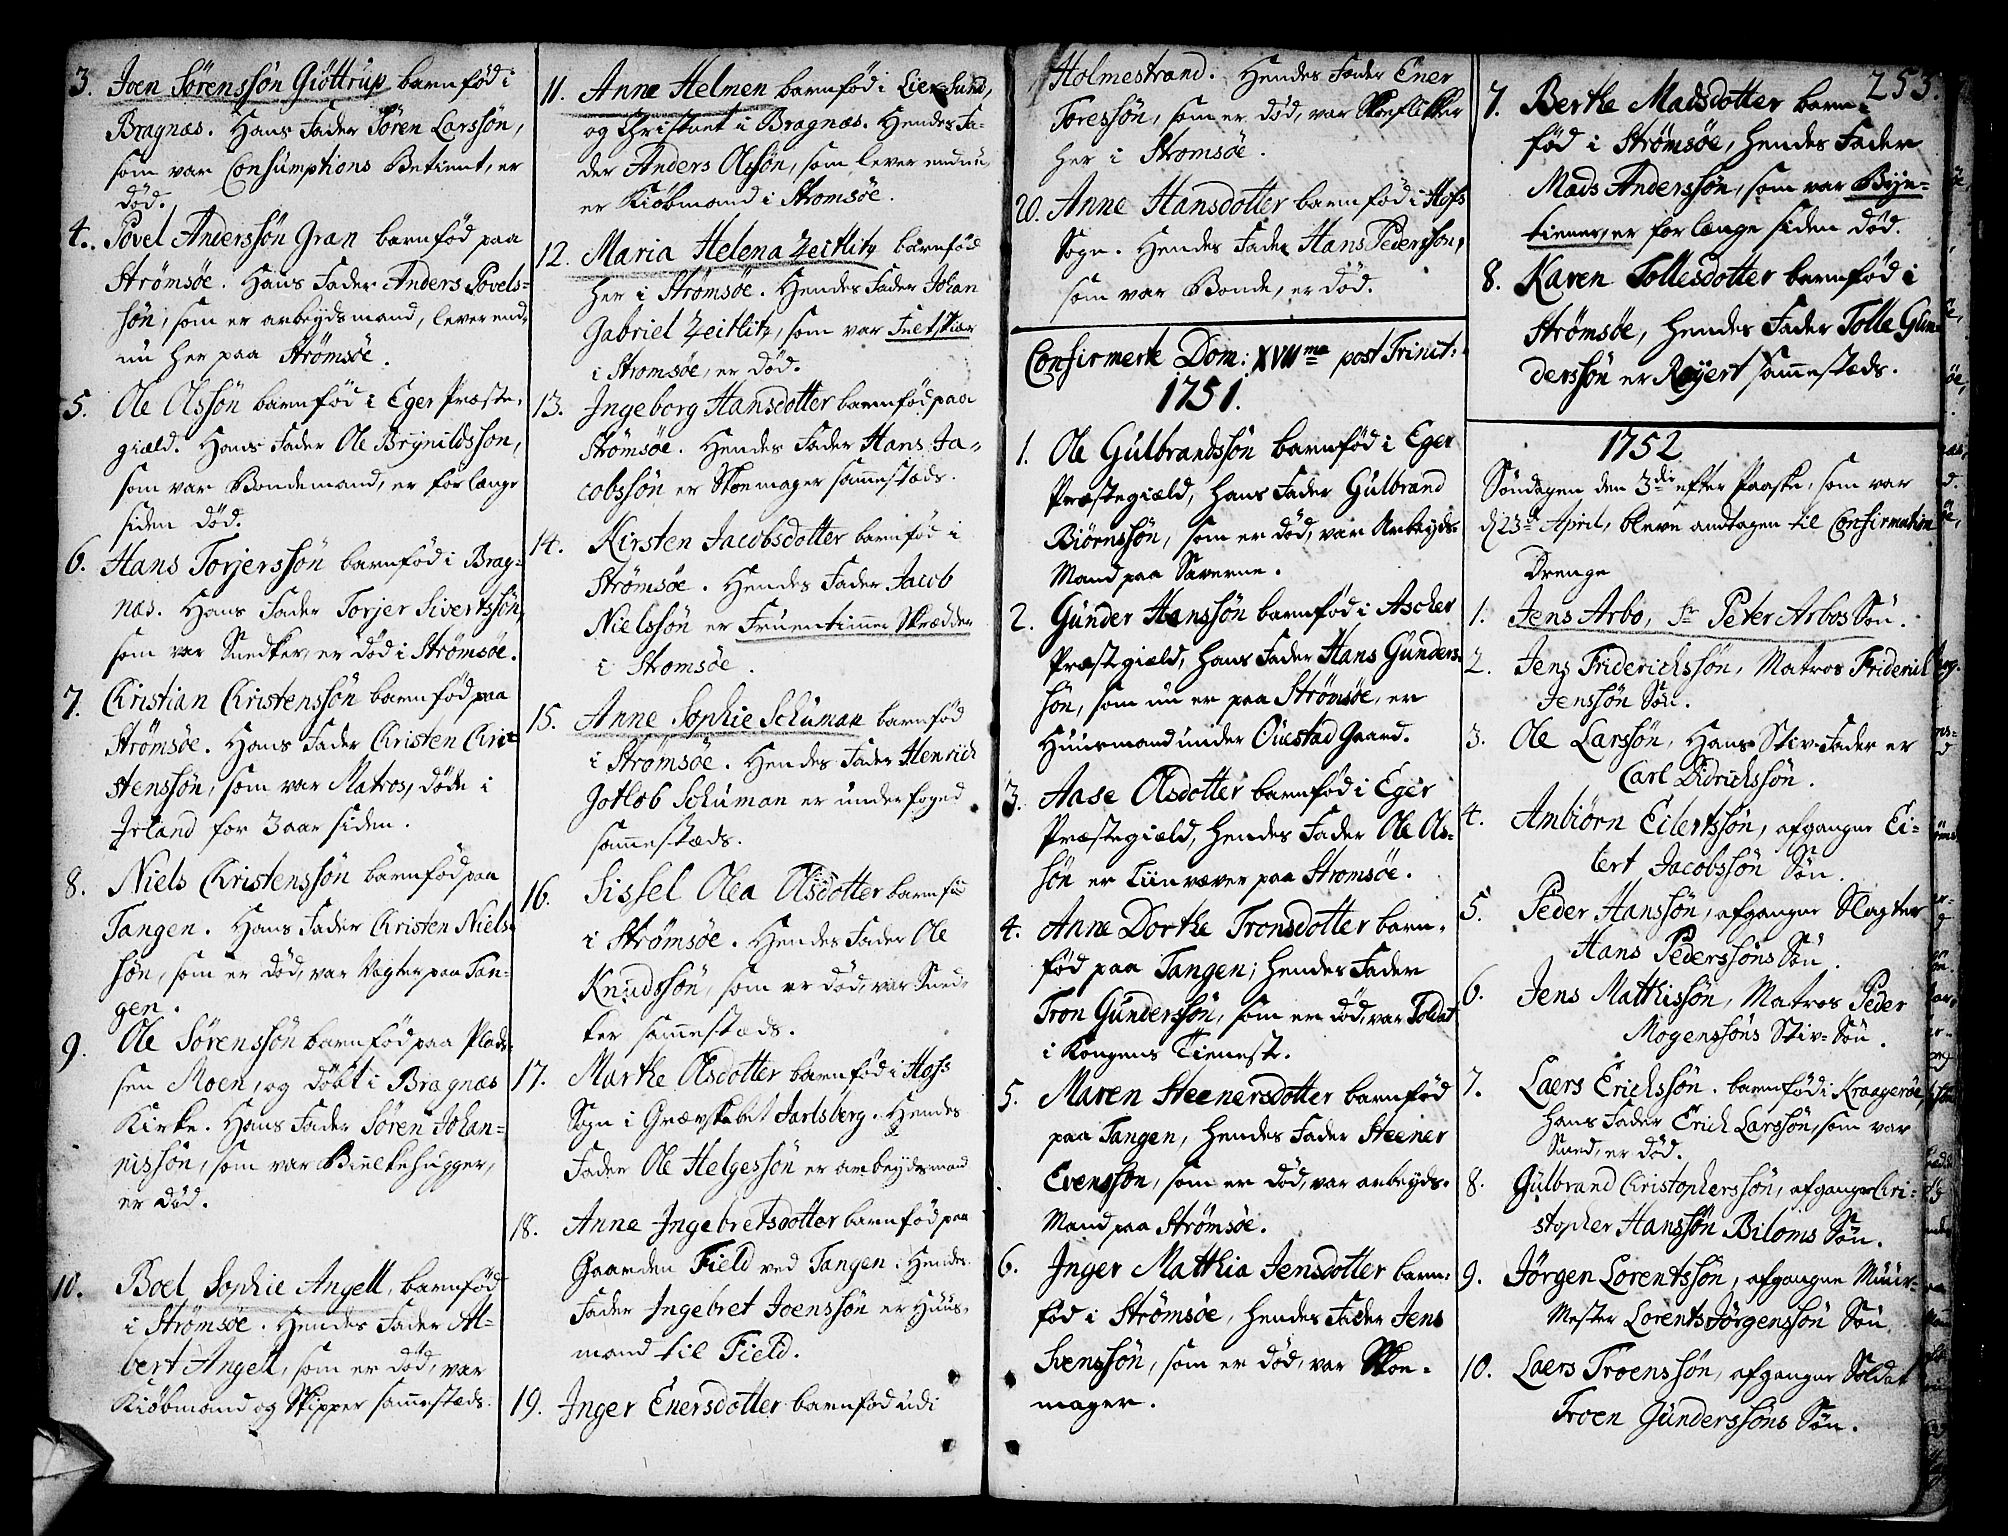 3. Joen Sörenssön Giöttrup barnfød i
Bragnæs. Hans Fader Sören Larssön,
som var Consumptions Betient, er
død.
4. Povel Anderssön Gran barnfød paa
Strömsöe. Hans Fader Anders Povels-
sön, som er arbeydsmand, lever end-
nu her paa Strömsöe.
5. Ole Olssön barnfød i Eger Præste-
giæld. Hans Fader Ole Brynildsson,
som var Bondemand, er for længe
siden død.
6. Hans Torjerssön barnfød i Brag-
nas. Hans Fader Torjer Sivertssön,
som var Snedker, er død i Strömsöe.
7. Christian Christenssön barnfød paa
Strömsöe. Hans Fader Christen Chri-
stenssön, som var Matros, døde i
Irland for 3 aar siden.
8. Niels Christenssön barnfød paa
Tangen. Hans Fader Christen Niels-
sön, som er død, var Vegter paa Tan-
gen.
9. Ole Sörenssön barnfød paa Plad-
sen Moen, og döbt i Bragnæs
Kirke. Hans Fader Sören Johan-
nissön, som var Bielkehugger,
er død.
10. Boel Sophie Angell, barnfød
i Strömsöe. Hendes Fader Al-
bert Angell, som er død, var
Kiöbmand og Skipper sammestæds.
11. Anne Helmen barnfød i Lier-Sund,
og Christnet i Bragnæs. Hendes Fa-
der Anders Olssön, som lever endnu,
er Kiöbmand i Stromsöe.
12. Maria Helena Zeitlitz barnfød
her i Strömsöe. Hendes Fader Johan
Gabriel Zeitlitz, som var Feltskiær
i Stromsöe, er død.
13. Ingeborg Hansdotter barnfød paa
Strömsöe. Hendes Fader Hans Ja-
cobssön er Skoemager sammestæds.
14. Kirsten Jacobsdotter barnfød i
Strömsöe. Hendes Fader Jacob
Nielssön er Fruentimmer Skrædder
i Stromsöe.
15. Anne Sophie Schuman barnfød
i Strömsöe. Hendes Fader Henrich
Gotlob Schuman er underfoged
sammestæds.
16. Sissel Olea Olsdotter barnfød
i Strömsöe. Hendes Fader Ole
Knudssön, som er død, var Sned-
ker sammestæds.
17. Marthe Olsdotter barnfød i Hofs
Sogn i Grævskabet Jarlsberg. Hendes
Fader Ole Helgessön er arbeydsmand
18. Anne Ingebretsdotter barnfød paa
Gaarden Field ved Tangen. Hendes
Fader Ingebret Joenssön er Huus-
mand til Field.
19. Inger Enersdotter barnfød udi
Holmestrand. Hendes Fader Ener
Toressön, som er død, var Skoeflikker
her i Stromsöe.
20. Anne Hansdotter barnfød i Hofs
Sogn. Hendes Fader Hans Pedersson,
som var Bonde, er død.
Confirmerte Dom: XVII me post Trinit:
1751.
1. Ole Gulbrandssön barnfød i Eger
Præstegiæld, hans Fader Gulbrand
Biörnssön, som er død, var Arbeyds
Mand paa Saverne.
2. Gunder Hanssön barnfød i Ascher
Præstegiæld, hans Fader Hans Gunders-
sön, som nu er paa Strömsöe, er
Huusmand under Ouestad Gaard.
3. Aase Olsdotter barnfød i Eger
Præstegiæld, hendes Fader Ole Ols-
sön er Liinvæver paa Stromsöe.
4. Anne Dorthe Tronsdotter barn-
fød paa Tangen; hendes Fader
Tron Gunderssön, som er død, var Soldat
i Kongens Tieneste.
5. Maren Steenersdotter barnfød
paa Tangen, hendes Fader Steener
Evensson, som er død, var arbeyds-
Mand paa Strömsöe.
6. Inger Matthia Jensdotter barn-
fød i Strömsöe, hendes Fader Jens
Svenssön, som er død, var Skoe-
mager.
253.
7. Berthe Madsdotter barn-
fød i Strömsöe, hendes Fader
Mads Anderssön, som var Byje-
tiener, er for længe siden død.
8. Karen Tollesdotter barnfød i
Strömsöe, hendes Fader Tolle Gun-
derssön er Røgert sammestæds.
1752
Søndagen den 3die efter Paaske, som var
d 23de April, bleve antagen til Confirmation
Drenge
1. Jens Arbo, Sr Peter Arbos Søn.
2. Jens Friderichssön, Matros Friderich
Jenssön Søn.
3. Ole Larssön, Hans Stiv-Fader er
Carl Didrichssön.
4. Ambiörn Eilertssön, afgangne Ei-
lert Jacobssön Søn.
5. Peder Hanssön, afgangne Slagter
Hans Pederssöns Søn.
6. Jens Mathissön, Matros Peder
Mogenssöns Stiv-Søn.
7. Laers Erichssön. barnfød i Kraageröe,
hans Fader Erich Larssön, som var
Smed, er død.
8. Gulbrand Christopherssön, afgangne Chri-
stopher Hanssön Biloms Søn.
9. Jörgen Lorentssön, afgangne Muur-
Mester Lorents Jörgenssön Søn
10. Laers Troenssön, afgangne Soldat
Troen Gunderssöns Søn.